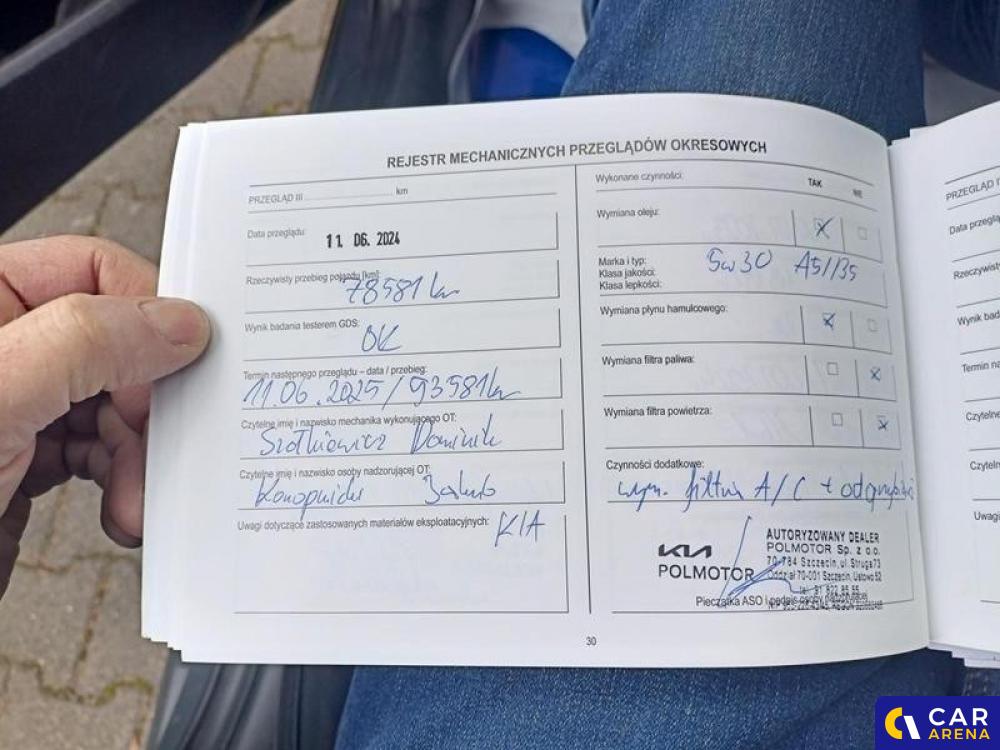 REJESTR MECHANICZNYCH PRZEGLĄDÓW OKRESOWYCH
PRZEGLĄD III ........................ km
Data przeglądu:
11. 06. 2024
Rzeczywisty przebieg pojazdu [km]:
78581 km
Wynik badania testerem GDS:
OK
Termin następnego przeglądu – data / przebieg:
11.06.2025/93581km
Czytelne imię i nazwisko mechanika wykonującego OT:
Szotkiewicz Dominik
Czytelne imię i nazwisko osoby nadzorującej OT:
Jakub
Uwagi dotyczące zastosowanych materiałów eksploatacyjnych: KIA
Wykonane czynności:
TAK NIE
Wymiana oleju:
Marka i typ: 5w30 A5/B5
Klasa jakości:
Klasa lepkości:
Wymiana płynu hamulcowego:
Wymiana filtra paliwa:
Wymiana filtra powietrza:
Czynności dodatkowe:
wym. filtra A/C +
KIA
POLMOTOR
AUTORYZOWANY DEALER
POLMOTOR Sp. z o.o.
70-784 Szczecin, ul. Struga 73
Oddział 70-001 Szczecin, Ustowo 52
Pieczątka ASO i podpis osoby nadzorującej
30
PRZEGLĄD
Data przeglą
Rzeczywisty
Wynik bad
Termin na
Czyteln
Czyteln
Uwagi
CAR
ARENA